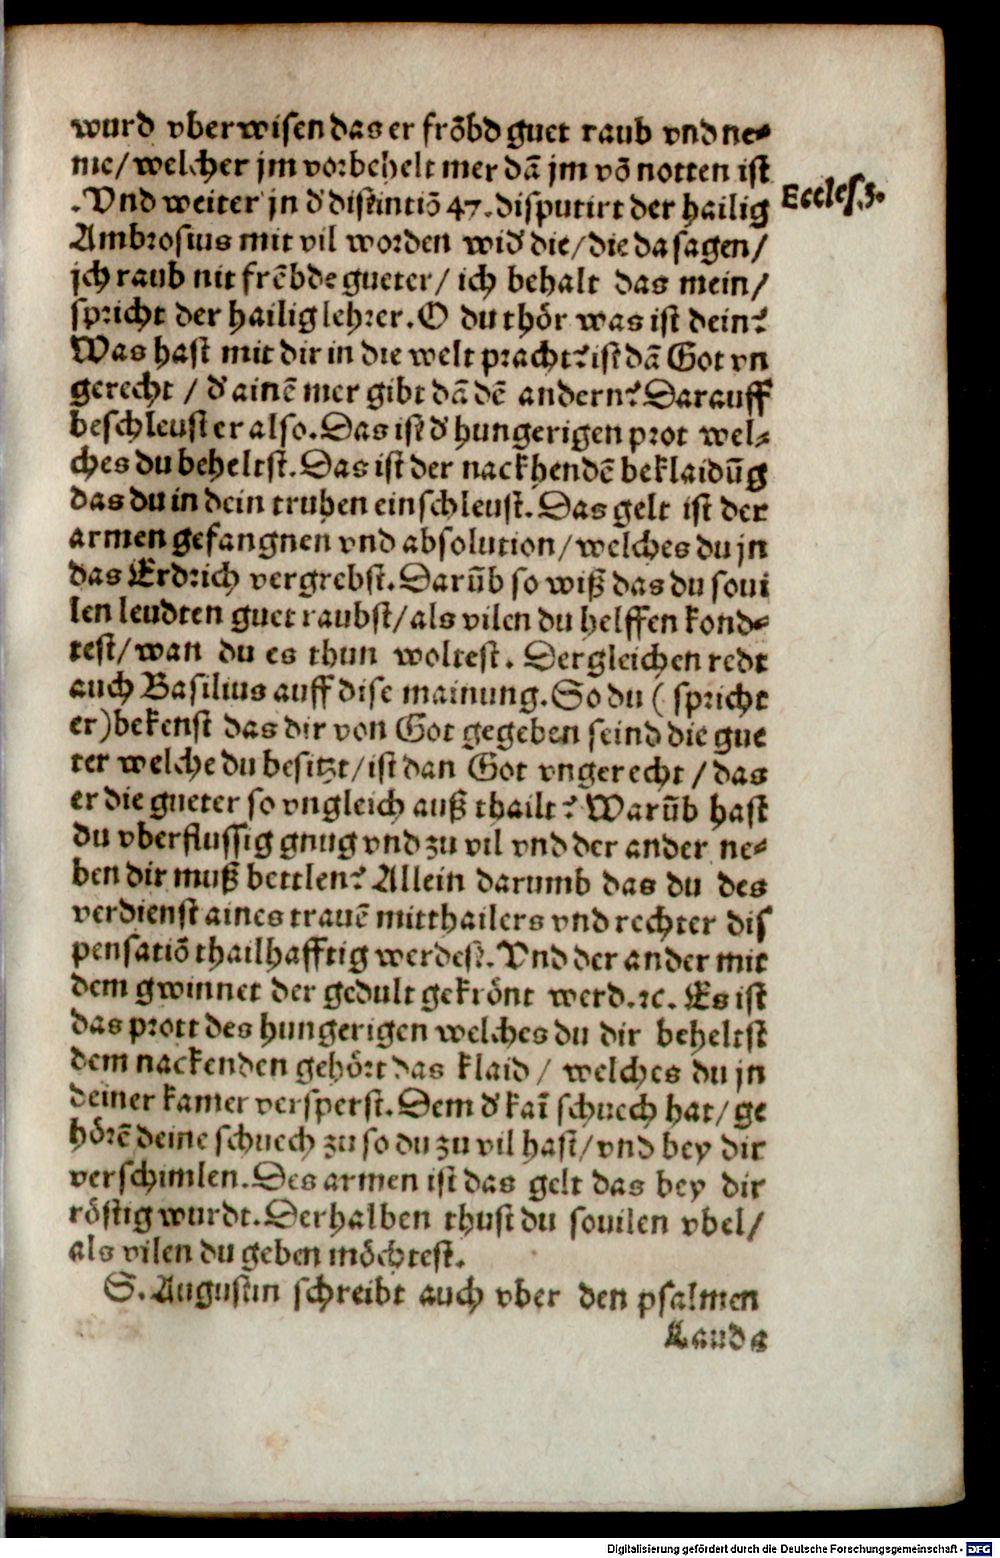 wurd vberwisen das er frõbd guet raub vnd ne⸗
me/ welcher jm vorbehelt mer dã jm võ notten ist
.Vnd weiter jn d' distintiõ 47. disputirt der hailig
Eccles. 3.
Ambrosius mit vil worden wid' die/ die da sagen/
jch raub nit frẽbde gueter/ ich behalt das mein/
spricht der hailig lehrer. O du thör was ist dein?
Was hast mit dir in die welt pracht? ist dã Got vn
gerecht / d' ainẽ mer gibt dã dẽ andern? Darauff
beschleust er also. Das ist d' hungerigen prot wel⸗
ches du beheltst. Das ist der nackhendẽ beklaidũg
das du in dein truhen einschleust. Das gelt ist der
armen gefangnen vnd absolution/ welches du jn
das Erdrich vergrebst. Darũb so wiß das du soui
len leudten guet raubst/ als vilen du helffen kond⸗
test/ wan du es thun woltest. Dergleichen redt
auch Basilius auff dise mainung. So du ( spricht
er) bekenst das dir von Got gegeben seind die gue
ter welche du besitzt/ ist dan Got vngerecht / das
er die gueter so vngleich auß thailt? Warũb hast
du vberflussig gnug vnd zu vil vnd der ander ne⸗
ben dir muß bettlen? Allein darumb das du des
verdienst aines trauẽ mitthailers vnd rechter dis
pensatiõ thailhafftig werdest. Vnd der ander mit
dem gwinnet der gedult gekrönt werd. ꝛc. Es ist
das prott des hungerigen welches du dir beheltst
dem nackenden gehört das klaid / welches du jn
deiner kamer versperst. Dem d' kaĩ schuech hat/ ge
hörẽ deine schuech zu so du zu vil hast/ vnd bey dir
verschimlen. Des armen ist das gelt das bey dir
röstig wurdt. Derhalben thust du souilen vbel/
als vilen du geben möchtest.
S. Augustin schreibt auch vber den psalmen
Lauda
Digitalisierung gefördert durch die Deutsche Forschungsgemeinschaft - DFG